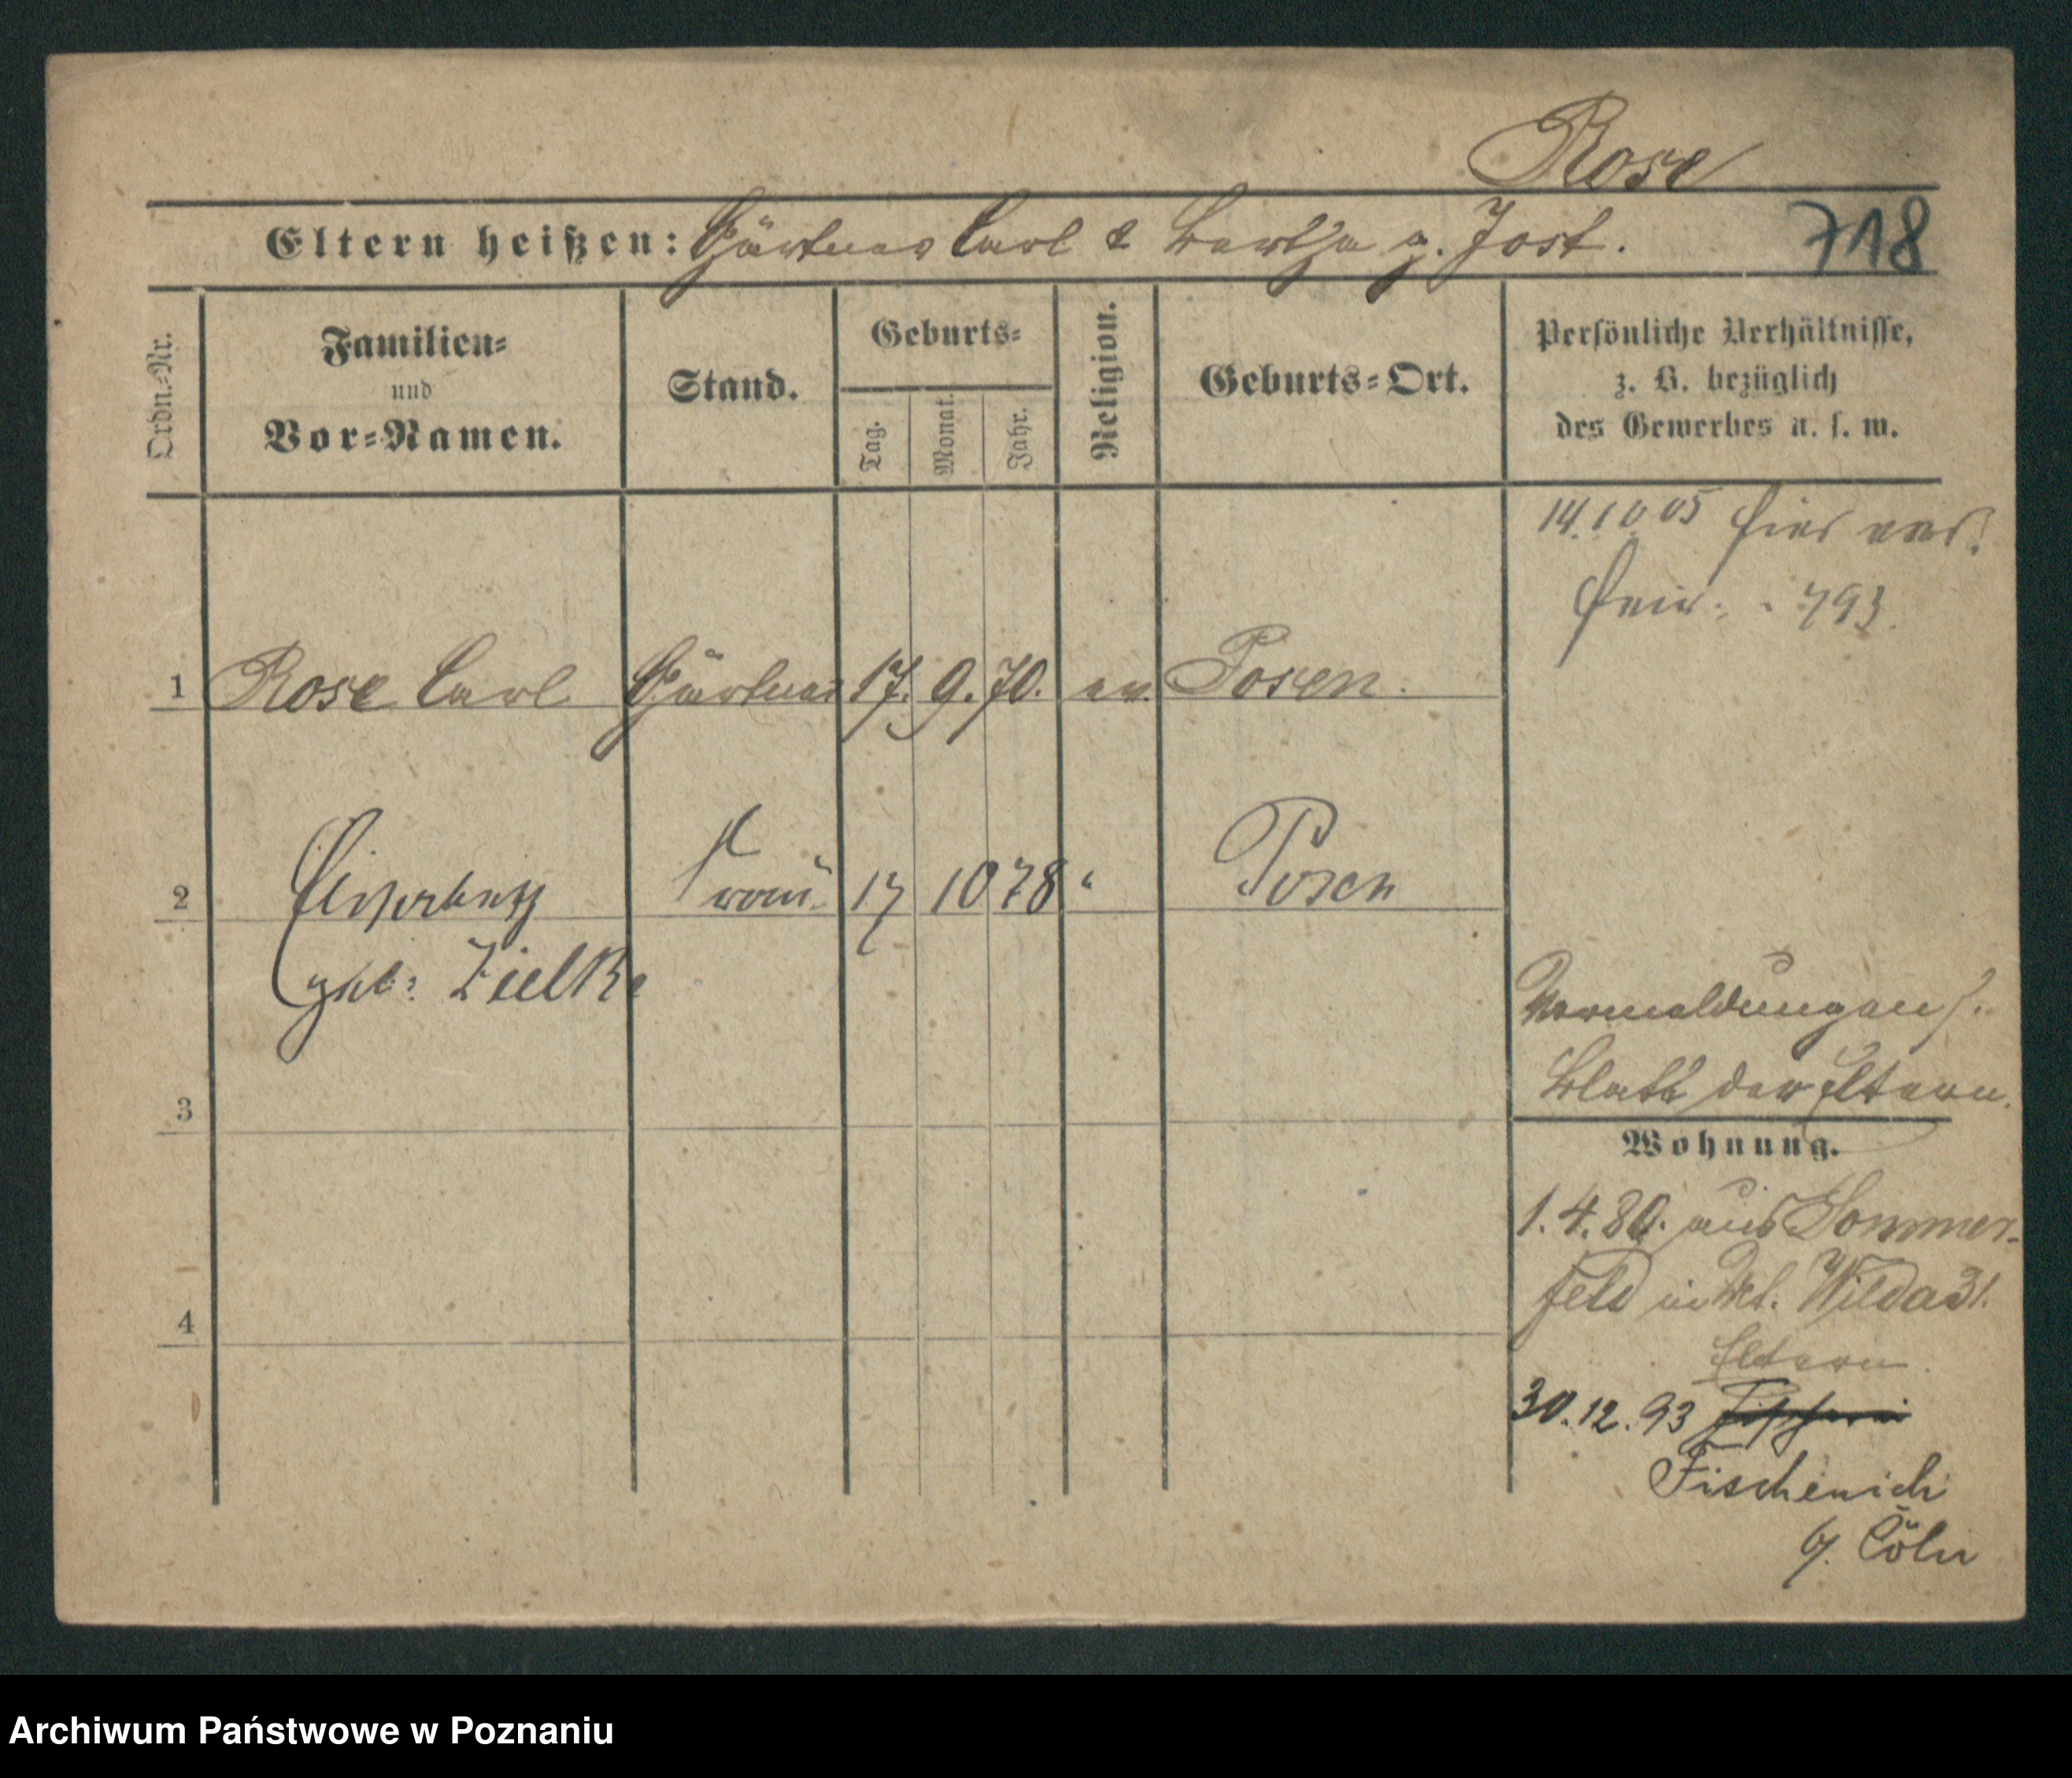 Rose
Eltern heißen: Gärtner Carl & Bertha g. Jost.
718
Ordn.=Nr.
Familien=
und
Vor=Namen.
Stand.
Geburts=
Tag.
Monat.
Jahr.
Religion.
Geburts=Ort.
Persönliche Verhältnisse,
z. B. bezüglich
des Gewerbes u. s. w.
14.10 05 hier
793
1 Rose Carl Gärtner 17. 9. 70. ev. Posen.
2 Frau 17 10 78 " Posen
geb: Zielke
Vermeldungen s.
Blatt der Eltern.
3
Wohnung.
1. 4. 80. aus Sommer-
feld in Wilda 31.
4
Eltern
30.12.93
Fischenich
b/ Cöln
Archiwum Państwowe w Poznaniu